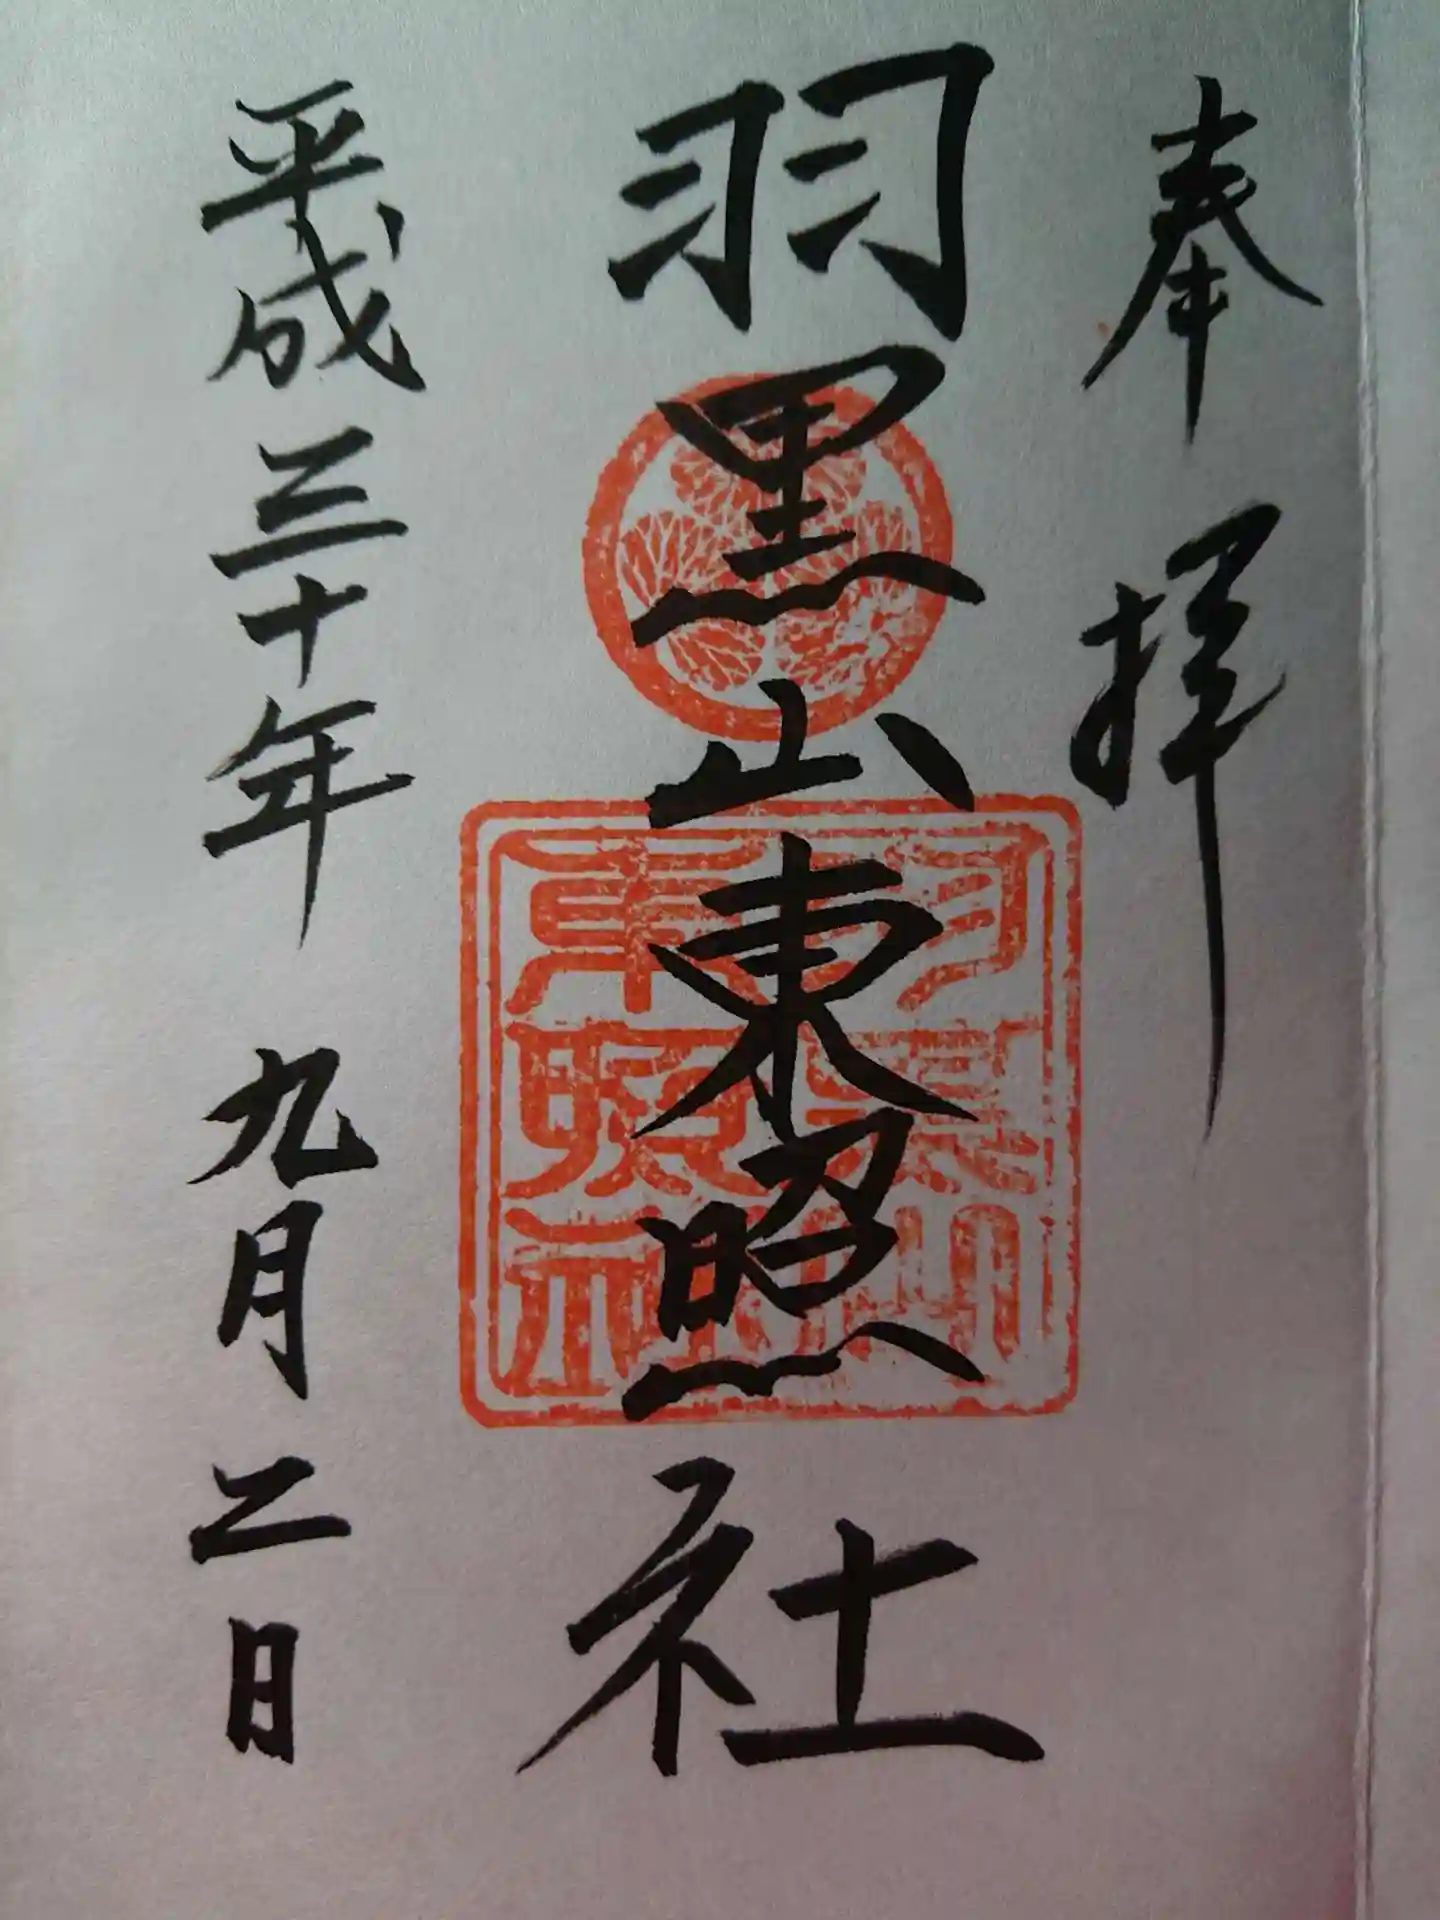 奉拝
羽黒山東照社
羽黒山
東照社
平成三十年 九月二日